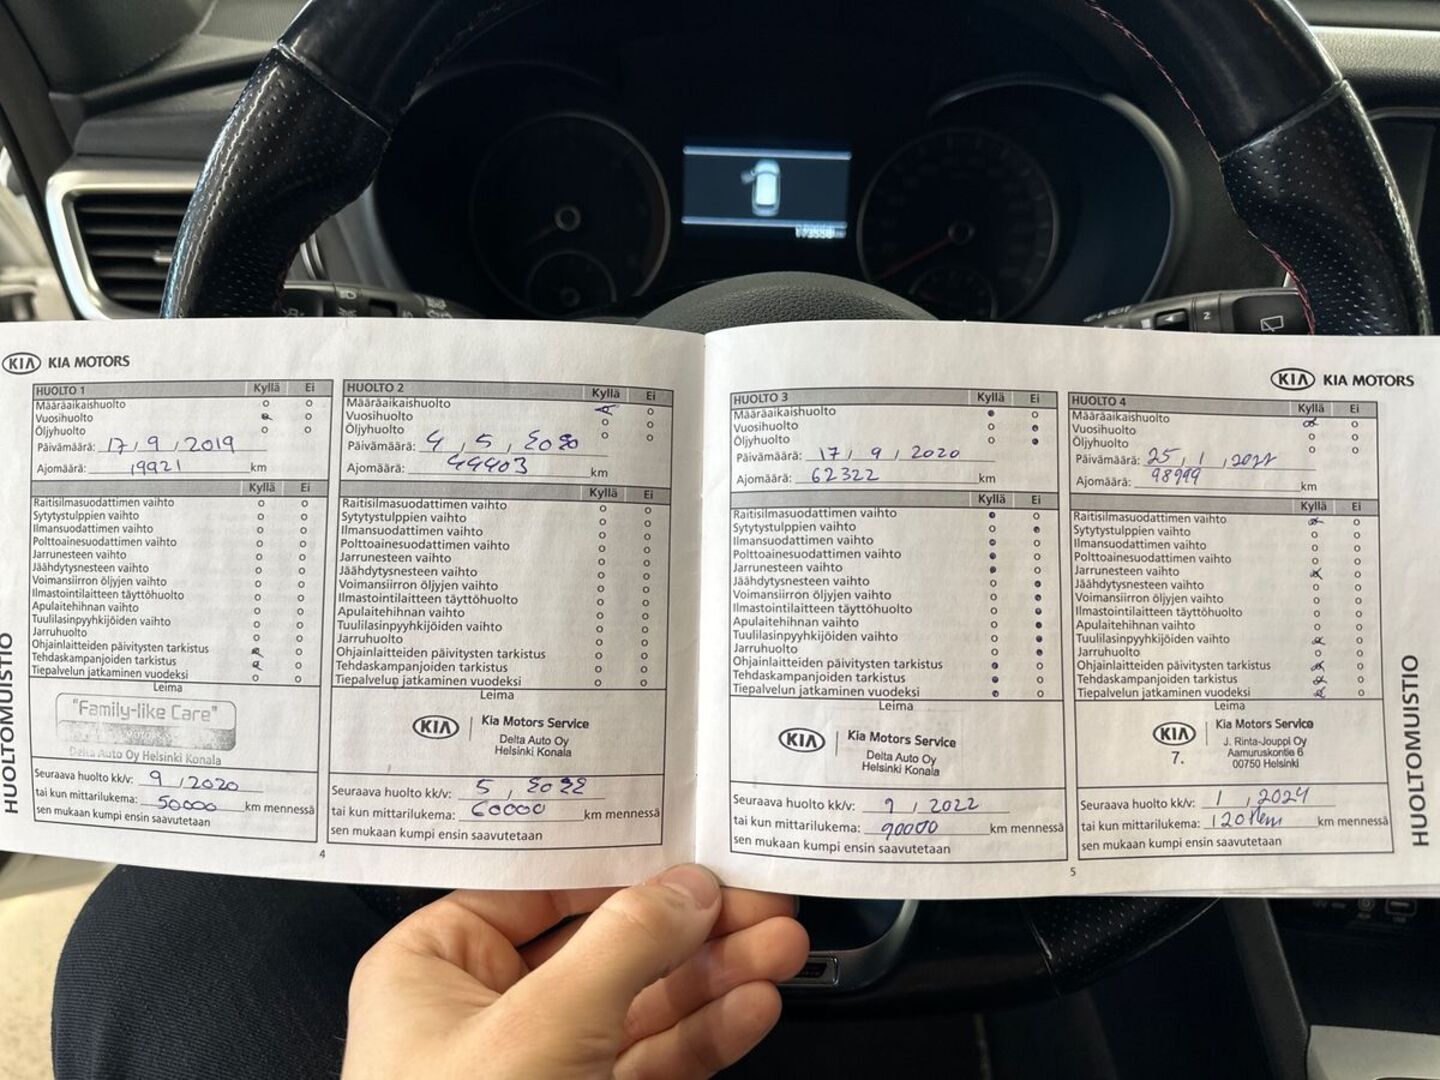 KIA KIA MOTORS
HUOLTO 1 Kyllä Ei
Määräaikaishuolto
Vuosihuolto
Öljyhuolto
Päivämäärä: 17 / 9 / 2019
Ajomäärä: 19921 km
Kyllä Ei
Raitisilmasuodattimen vaihto
Sytytystulppien vaihto
Ilmansuodattimen vaihto
Polttoainesuodattimen vaihto
Jarrunesteen vaihto
Jäähdytysnesteen vaihto
Voimansiirron öljyjen vaihto
Ilmastointilaitteen täyttöhuolto
Apulaitehihnan vaihto
Tuulilasinpyyhkijöiden vaihto
Jarruhuolto
Ohjainlaitteiden päivitysten tarkistus
Tehdaskampanjoiden tarkistus
Tiepalvelun jatkaminen vuodeksi
Leima
"Family-like Care"
Delta Auto Oy Helsinki Konala
Seuraava huolto kk/v: 9 / 2020
tai kun mittarilukema: 50000 km mennessä
sen mukaan kumpi ensin saavutetaan
HUOLTOMUISTIO
HUOLTO 2 Kyllä Ei
Määräaikaishuolto
Vuosihuolto
Öljyhuolto
Päivämäärä: 4 , 5 , 2020
Ajomäärä: 44403 km
Kyllä Ei
Raitisilmasuodattimen vaihto
Sytytystulppien vaihto
Ilmansuodattimen vaihto
Polttoainesuodattimen vaihto
Jarrunesteen vaihto
Jäähdytysnesteen vaihto
Voimansiirron öljyjen vaihto
Ilmastointilaitteen täyttöhuolto
Apulaitehihnan vaihto
Tuulilasinpyyhkijöiden vaihto
Jarruhuolto
Ohjainlaitteiden päivitysten tarkistus
Tehdaskampanjoiden tarkistus
Tiepalvelun jatkaminen vuodeksi
Leima
KIA Kia Motors Service
Delta Auto Oy
Helsinki Konala
Seuraava huolto kk/v: 5 , 2022
tai kun mittarilukema: 60000 km mennessä
sen mukaan kumpi ensin saavutetaan
4
KIA KIA MOTORS
HUOLTO 3 Kyllä Ei
Määräaikaishuolto
Vuosihuolto
Öljyhuolto
Päivämäärä: 17 / 9 / 2020
Ajomäärä: 62322 km
Kyllä Ei
Raitisilmasuodattimen vaihto
Sytytystulppien vaihto
Ilmansuodattimen vaihto
Polttoainesuodattimen vaihto
Jarrunesteen vaihto
Jäähdytysnesteen vaihto
Voimansiirron öljyjen vaihto
Ilmastointilaitteen täyttöhuolto
Apulaitehihnan vaihto
Tuulilasinpyyhkijöiden vaihto
Jarruhuolto
Ohjainlaitteiden päivitysten tarkistus
Tehdaskampanjoiden tarkistus
Tiepalvelun jatkaminen vuodeksi
Leima
KIA Kia Motors Service
Delta Auto Oy
Helsinki Konala
Seuraava huolto kk/v: 9 , 2022
tai kun mittarilukema: 90000 km mennessä
sen mukaan kumpi ensin saavutetaan
HUOLTO 4 Kyllä Ei
Määräaikaishuolto
Vuosihuolto
Öljyhuolto
Päivämäärä: 25 , 1 , 2022
Ajomäärä: 98999 km
Kyllä Ei
Raitisilmasuodattimen vaihto
Sytytystulppien vaihto
Ilmansuodattimen vaihto
Polttoainesuodattimen vaihto
Jarrunesteen vaihto
Jäähdytysnesteen vaihto
Voimansiirron öljyjen vaihto
Ilmastointilaitteen täyttöhuolto
Apulaitehihnan vaihto
Tuulilasinpyyhkijöiden vaihto
Jarruhuolto
Ohjainlaitteiden päivitysten tarkistus
Tehdaskampanjoiden tarkistus
Tiepalvelun jatkaminen vuodeksi
Leima
KIA Kia Motors Service
7. J. Rinta-Jouppi Oy
Aamuruskontie 6
00750 Helsinki
Seuraava huolto kk/v: 1 , 2024
tai kun mittarilukema: km mennessä
sen mukaan kumpi ensin saavutetaan
5
HUOLTOMUISTIO